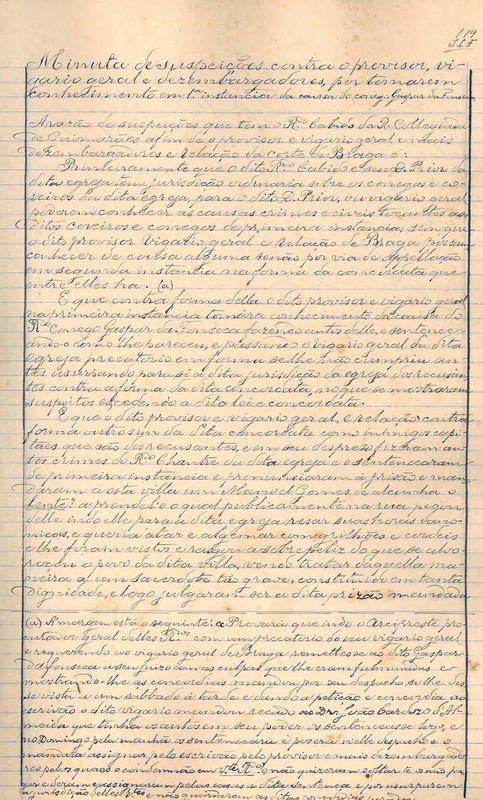 119
J.L.F
Minuta de suspeições contra o provisor, vi-
gario geral e dezembargadores, por tomarem
conhecimento em 1ª instancia da causa do conego Gaspar da Fonseca
A razão da suspeições que tem o R.do Cabido da R. Collegiada
de Guimarães a fim de o provisor e vigario geral e mais
dezembargadores e relação da corte de Braga é:
Primeiramente que o dito R.do Cabido e seu D. Prior da
dita egreja tem jurisdição ordinaria sobre os conegos e co-
reiros da dita egreja, para o dito D. Prior, ou vigario geral
poderem conhecer as causas crimes e civeis tocantes aos
ditos coreiros e conegos de primeira instancia, sem que
o dito provisor vigario geral e relação de Braga possam
conhecer de causa alguma senão por via de appellação
em segunda instancia na forma da concordata que
entre elles ha. (a)
E que contra forma della o dito provisor e vigario geral
na primeira instancia tomára conhecimento da causa do
R.do Conego Gaspar da Fonseca fazendo autos delle, e sentence-
ando-o como lhe pareceu, e passando o vigario geral da dita
egreja precatorio em forma se lhe não cumpriu an-
tes usurpando para si a dita jurisdição da egreja dos recusan-
tes contra a forma da dita concordata, no que se mostraram
suspeitos excedendo a dita lei e concordata.
E que o dito provisor e vigario geral, e relação contra
forma outro sim da dita concordata como inimigos capi-
taes que são dos recusantes, e em seu desprezo fizeram au-
tos crimes do R.do Chantre da dita egreja e o sentencearam
de primeira instancia e pronunciaram á prisão e man-
daram a esta villa um Manoel Gomes de alcunha o
Lente? a prendel-o o qual publicamente na rua pegou
delle indo elle para a dita egreja resar suas horas cano-
nicas, e queria atar e algemar com grilhões e cordeis
e lhe foram vistos e rasgou a sobrepeliz do que se alvo-
roçou o povo da dita villa, vendo tratar daquella ma-
neira a um sacerdote tão grave, constituido em tanta
dignidade, e logo julgaram ser a dita prizão mandada
(a) A' margem está o seguinte: Provará que indo o Arcipreste pro-
curador geral delles R.R. com um precatorio do seu vigario geral
e requerendo ao vigario geral de Braga remettesse ao dito Gaspar
da Fonseca a seu juizo com as culpas que lhe eram fulminadas e
mostrando-lhe as concordias mandou por seu despacho se lhe des-
se vista a um sabbado á tarde e dando a petição e concordia ao
escrivão o dito vigario mandou recado ao Dr. João Cardoso d'Al-
meida que tinha os autos em seu poder os sentenceasse logo, e
no Domingo pela manhã os sentenceára e pozera nelle despacho e o
mandára assignar pelo escrivão pelo provisor e mais dezembargado-
res pelos quaes o condemnão em